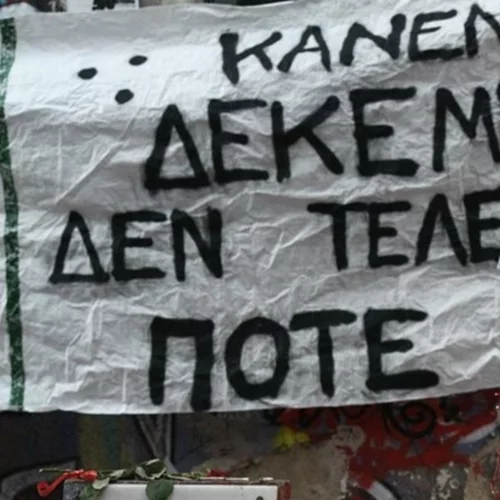 ΚΑΝΕΝ
ΔΕΚΕΜ
ΔΕΝ ΤΕΛΕ
ΠΟΤΕ